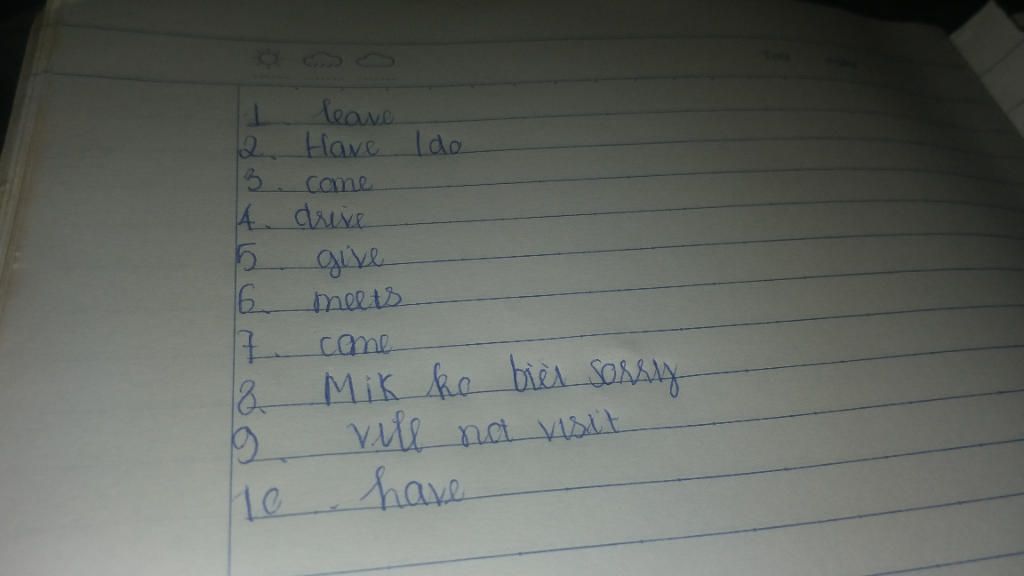 1. leave
2. Have I do
3. come
4. drive
5. give
6. meets
7. come
8. Mik ko biêt sorry
9. vill not visit
10. have